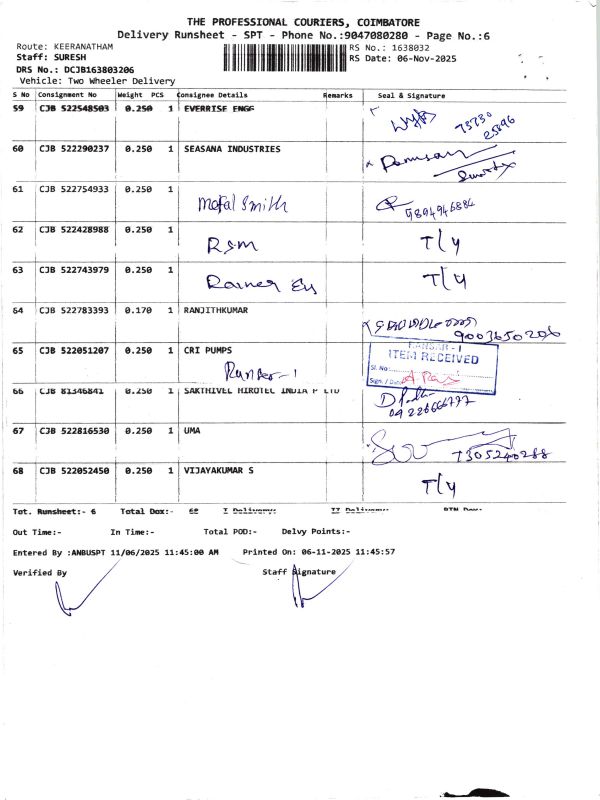 THE PROFESSIONAL COURIERS, COIMBATORE
Delivery Runsheet - SPT - Phone No.:9047080280 - Page No.:6
Route: KEERANATHAM RS No.: 1638032
Staff: SURESH RS Date: 06-Nov-2025
DRS No.: DCJB163803206
Vehicle: Two Wheeler Delivery
S No Consignment No Weight PCS Consignee Details Remarks Seal & Signature
59 CJB 522548503 0.250 1 EVERRISE ENGG
60 CJB 522290237 0.250 1 SEASANA INDUSTRIES
61 CJB 522754933 0.250 1
Mefal Smith 9894946884
62 CJB 522428988 0.250 1
RSM T/4
63 CJB 522743979 0.250 1 T/4
Rainer
64 CJB 522783393 0.170 1 RANJITHKUMAR
9003650206
65 CJB 522051207 0.250 1 CRI PUMPS
RANSAR - I
ITEM RECEIVED
Sl. No.
Sign. / Date
66 CJB 81346841 0.250 1 SAKTHIVEL HIROTEC INDIA P LTD
67 CJB 522816530 0.250 1 UMA
7305240288
68 CJB 522052450 0.250 1 VIJAYAKUMAR S
T/4
Tot. Runsheet:- 6 Total Dox:- 68 I Delivery: II Delivery:- RTN Dox:-
Out Time:- In Time:- Total POD:- Delvy Points:-
Entered By :ANBUSPT 11/06/2025 11:45:00 AM Printed On: 06-11-2025 11:45:57
Verified By Staff Signature